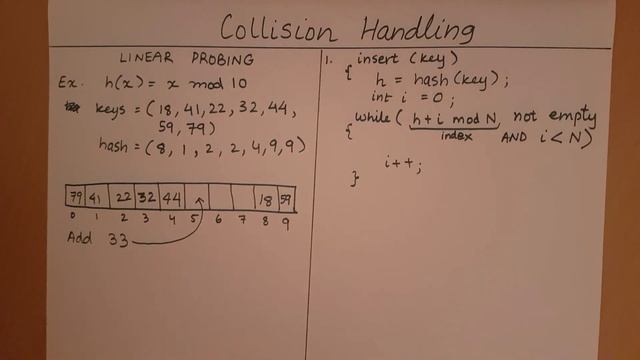 Collision Handling
LINEAR PROBING
Ex. h(x) = x mod 10
keys = (18, 41, 22, 32, 44,
59, 79)
hash = (8, 1, 2, 2, 4, 9, 9)
79 41 22 32 44 18 59
0 1 2 3 4 5 6 7 8 9
Add 33
1. insert (key)
{ h = hash(key);
int i = 0;
while( h+i mod N, not empty
{ index AND i < N)
i++;
}